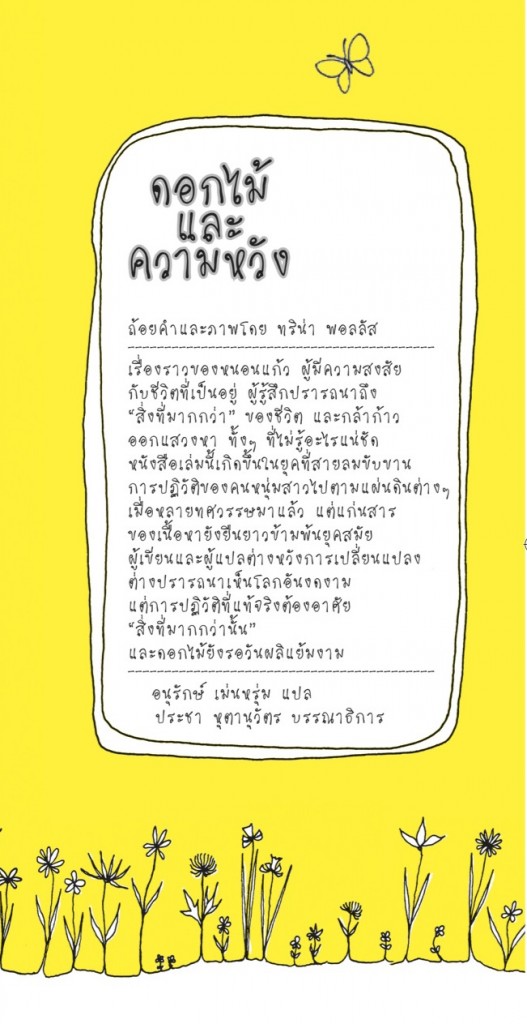 ดอกไม้
และ
ความหวัง
ถ้อยคำและภาพโดย ทริน่า พอลลัส
เรื่องราวของหนอนแก้ว ผู้มีความสงสัย
กับชีวิตที่เป็นอยู่ ผู้รู้สึกปรารถนาถึง
“สิ่งที่มากกว่า” ของชีวิต และกล้าก้าว
ออกแสวงหา ทั้งๆ ที่ไม่รู้อะไรแน่ชัด
หนังสือเล่มนี้เกิดขึ้นในยุคที่สายลมขับขาน
การปฏิวัติของคนหนุ่มสาวไปตามแผ่นดินต่างๆ
เมื่อหลายทศวรรษมาแล้ว แต่แก่นสาร
ของเนื้อหายังยืนยาวข้ามพ้นยุคสมัย
ผู้เขียนและผู้แปลต่างหวังการเปลี่ยนแปลง
ต่างปรารถนาเห็นโลกอันงดงาม
แต่การปฏิวัติที่แท้จริงต้องอาศัย
“สิ่งที่มากกว่านั้น”
และดอกไม้ยังรอวันผลิแย้มงาม
อนุรักษ์ เม่นหรุ่ม แปล
ประชา หุตานุวัตร บรรณาธิการ